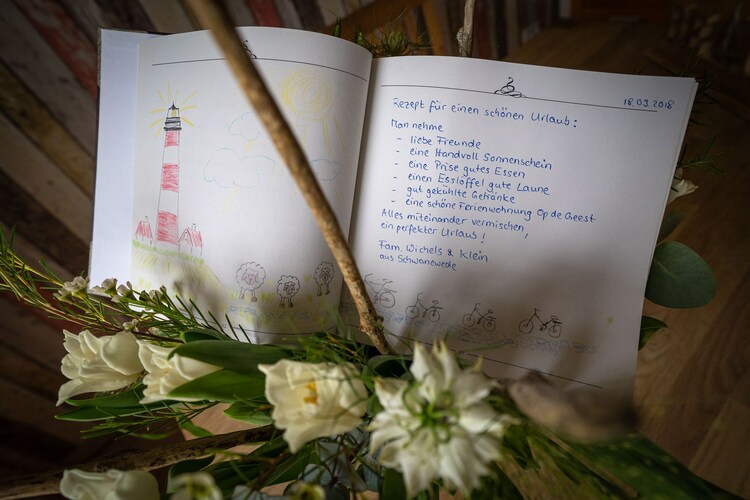 18.09.2018
Rezept für einen schönen Urlaub:
Man nehme
- liebe Freunde
- eine Handvoll Sonnenschein
- eine Prise gutes Essen
- einen Esslöffel gute Laune
- gut gekühlte Getränke
- eine schöne Ferienwohnung Op de Geest
Alles miteinander vermischen,
ein perfekter Urlaub!
Fam. Wichels & Klein
aus Schwanewede